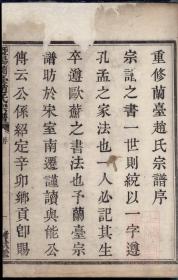 重修蘭臺趙氏宗譜序
宗誌之書一世則統以一字遵
孔孟之家法也一人必記其生
卒遵歐蘇之書法也予蘭臺宗
譜昉於宋室南遷謹讀與能公
傳云公係紹定辛卯鄉貢卽賜